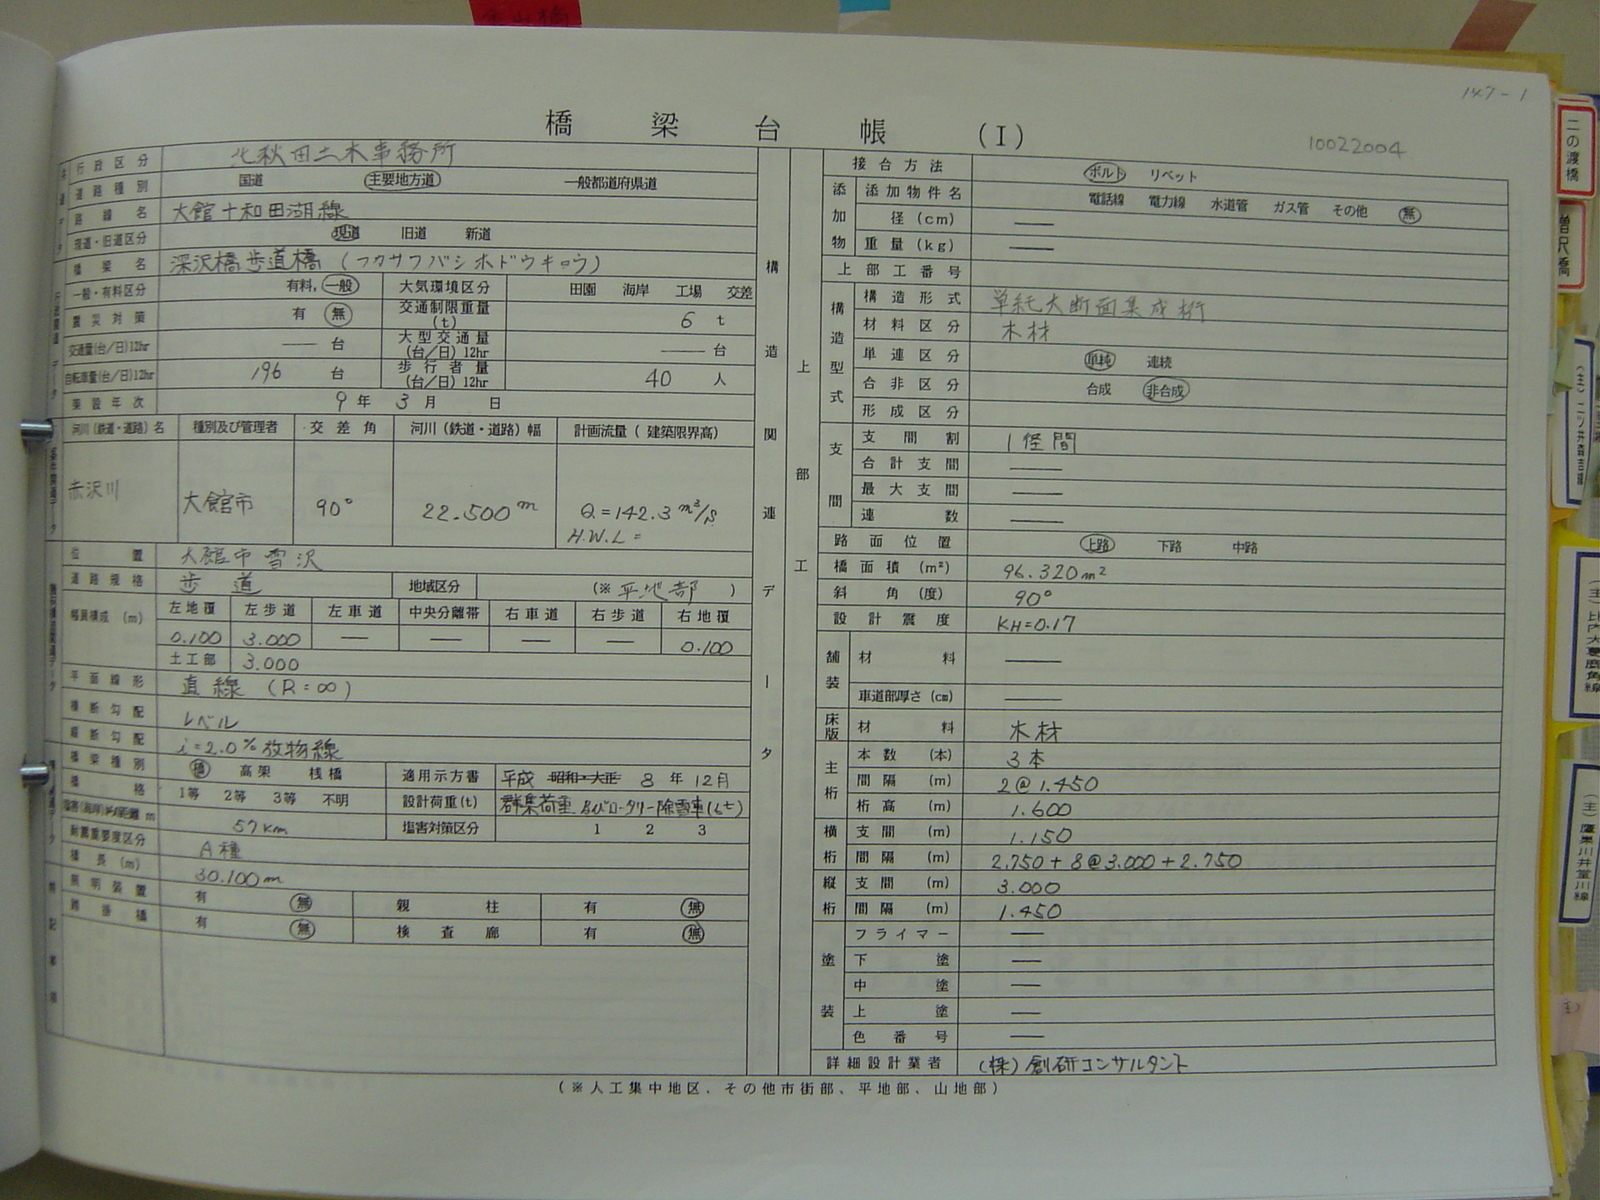 147-1
橋梁台帳 (I)
10022004
行政区分 北秋田土木事務所
道路種別 国道 主要地方道 一般都道府県道
路線名 大館十和田湖線
現道・旧道区分 現道 旧道 新道
橋梁名 深沢橋歩道橋 (フカサワバシホドウキョウ)
一般・有料区分 有料, 一般 大気環境区分 田園 海岸 工場 交差
震災対策 有 無 交通制限重量(t) 6 t
交通量(台/日)12hr — 台 大型交通量(台/日)12hr — 台
自転車量(台/日)12hr 196 台 歩行者量(台/日)12hr 40 人
架設年次 9年 3月 日
河川(鉄道・道路)名 種別及び管理者 交差角 河川(鉄道・道路)幅 計画流量(建築限界高)
赤沢川 大館市 90° 22.500m Q=142.3 m³/s
H.W.L=
位置 大館市雪沢
道路規格 歩道 地域区分 (※平地部)
幅員構成 (m) 左地覆 左歩道 左車道 中央分離帯 右車道 右歩道 右地覆
0.100 3.000 — — — — 0.100
土工部 3.000
平面線形 直線 (R=∞)
横断勾配 レベル
縦断勾配 i=2.0% 放物線
橋梁種別 橋 高架 桟橋 適用示方書 平成 昭和・大正 8年12月
橋格 1等 2等 3等 不明 設計荷重(t) 群集荷重及びロータリー除雪車(6t)
57km 塩害対策区分 1 2 3
耐震重要度区分 A種
橋長(m) 30.100m
照明装置 有 無 親柱 有 無
踏掛橋 有 無 検査廊 有 無
構造関連データ
上部工
接合方法 ボルト リベット
添加物 添加物件名 電話線 電力線 水道管 ガス管 その他 無
径(cm) —
重量(kg) —
上部工番号
構造型式 構造形式 単純大断面集成桁
材料区分 木材
単連区分 単純 連続
合非区分 合成 非合成
形成区分
支間 支間割 1径間
合計支間 —
最大支間 —
連数 —
路面位置 上路 下路 中路
橋面積(m²) 96.320m²
斜角(度) 90°
設計震度 KH=0.17
舗装 材料 —
車道部厚さ(cm) —
床版 材料 木材
主桁 本数(本) 3本
間隔(m) 2@1.450
桁高(m) 1.600
横桁 支間(m) 1.150
間隔(m) 2.750+8@3.000+2.750
縦桁 支間(m) 3.000
間隔(m) 1.450
塗装 プライマー —
下塗 —
中塗 —
上塗 —
色番号 —
詳細設計業者 (株)創研コンサルタント
(※人工集中地区、その他市街部、平地部、山地部)
二の渡橋